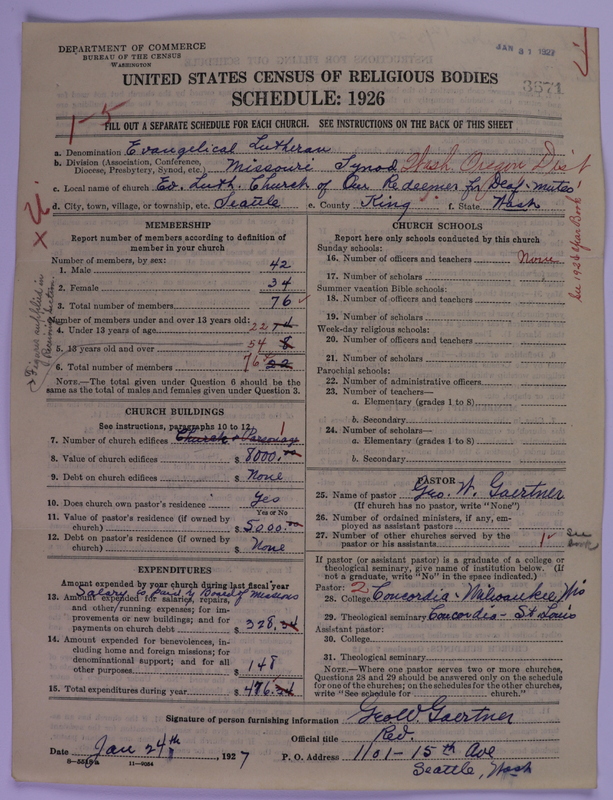 DEPARTMENT OF COMMERCE
BUREAU OF THE CENSUS
WASHINGTON
JAN 31 1927
UNITED STATES CENSUS OF RELIGIOUS BODIES
SCHEDULE: 1926
3671
1-5
FILL OUT A SEPARATE SCHEDULE FOR EACH CHURCH. SEE INSTRUCTIONS ON THE BACK OF THIS SHEET
a. Denomination Evangelical Lutheran
b. Division (Association, Conference, Diocese, Presbytery, Synod, etc.) Missouri Synod Wash. Oregon Dist
c. Local name of church Ev. Luth. Church of Our Redeemer for Deaf-mutes
d. City, town, village, or township, etc. Seattle e. County King f. State Wash
MEMBERSHIP
Report number of members according to definition of
member in your church
Number of members, by sex:
1. Male 42
2. Female 34
3. Total number of members 76
Number of members under and over 13 years old:
4. Under 13 years of age 22
5. 13 years old and over 54 8
6. Total number of members 76 22
Figures supplied in
NOTE.—The total given under Question 6 should be the
same as the total of males and females given under Question 3.
CHURCH BUILDINGS
See instructions, paragraphs 10 to 12
7. Number of church edifices Church + Parsonage 1
8. Value of church edifices $ 8000.00
9. Debt on church edifices $ None
10. Does church own pastor's residence Yes
Yes or No
11. Value of pastor's residence (if owned by
church) $ 5000.00
12. Debt on pastor's residence (if owned by
church) $ None
EXPENDITURES
Amount expended by your church during last fiscal year
Salary is paid by Board of Missions
13. Amount expended for salaries, repairs,
and other running expenses; for im-
provements or new buildings; and for
payments on church debt $ 328.34
14. Amount expended for benevolences, in-
cluding home and foreign missions; for
denominational support; and for all
other purposes $ 148
15. Total expenditures during year $ 476.34
CHURCH SCHOOLS
Report here only schools conducted by this church
Sunday schools:
16. Number of officers and teachers None
17. Number of scholars
Summer vacation Bible schools:
18. Number of officers and teachers
19. Number of scholars
Week-day religious schools:
20. Number of officers and teachers
21. Number of scholars
Parochial schools:
22. Number of administrative officers
23. Number of teachers—
a. Elementary (grades 1 to 8)
b. Secondary
24. Number of scholars—
a. Elementary (grades 1 to 8)
b. Secondary
See 1926 Year Book
PASTOR
25. Name of pastor Geo. W. Gaertner
(If church has no pastor, write "None")
26. Number of ordained ministers, if any, em-
ployed as assistant pastors
27. Number of other churches served by the
pastor or his assistants 1
See
Book
If pastor (or assistant pastor) is a graduate of a college or
theological seminary, give name of institution below. (If
not a graduate, write "No" in the space indicated.)
Pastor: 2
28. College Concordia - Milwaukee, Wis
29. Theological seminary Concordia - St Louis
Assistant pastor:
30. College
31. Theological seminary
NOTE.—Where one pastor serves two or more churches,
Questions 28 and 29 should be answered only on the schedule
for one of the churches; on the schedules for the other churches,
write "See schedule for ______ church."
Signature of person furnishing information Geo W. Gaertner
Official title Rev.
Date Jan 24th, 1927 P. O. Address 1101-15th Ave
Seattle, Wash
11-9064